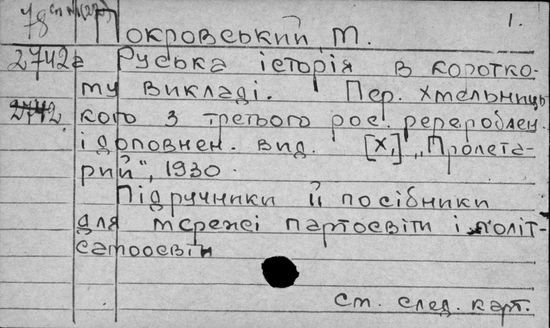 78 1.
Покровський М.
2742а Руська історія в коротко-
му викладі. Пер. Хмельниць
2742. кого з третього рос. перероблен.
і доповнен. вид. [Х,] „Пролета-
рий", 1930.
Підручники й посібники
для мережі партосвіти і політ-
самоосвіти
См. след. карт.